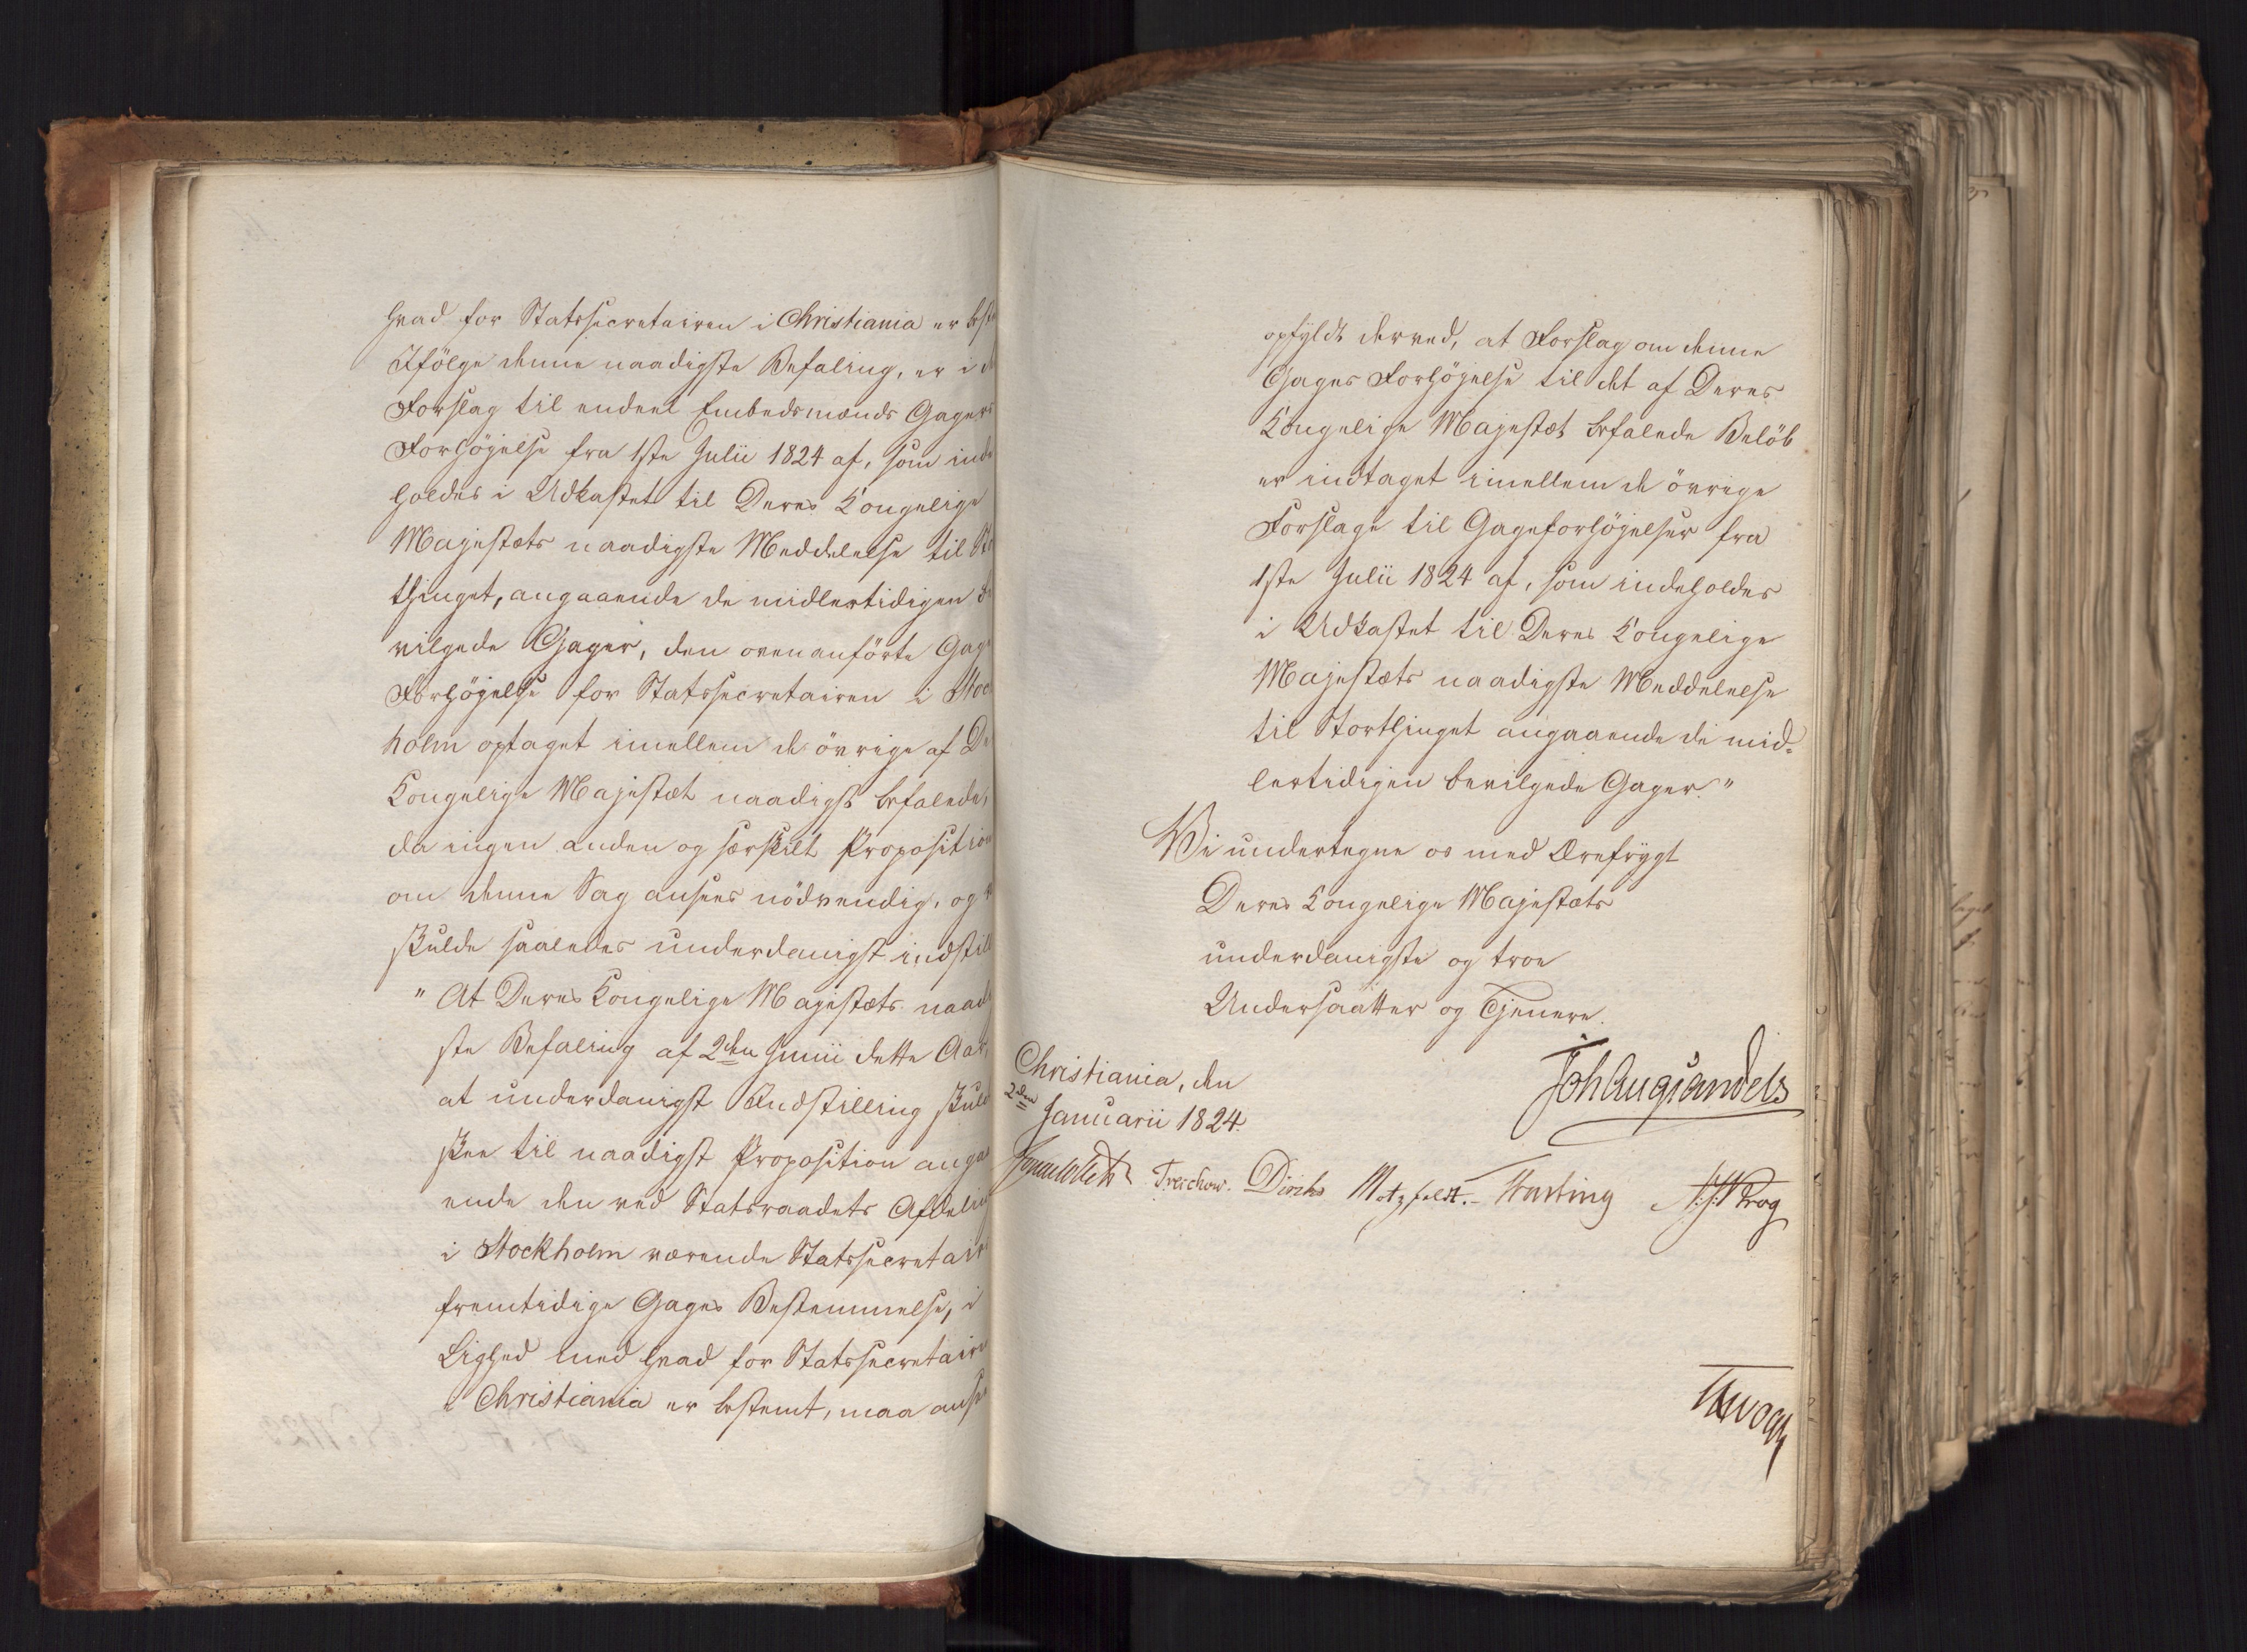 hvad for Statssecretairen i Christiania er
Ifölge denne naadigste Befaling, er i
Forslag til endeel Embedsmænds Gagers
Forhöjelse fra 1ste Julii 1824 af, som inde
holdes i Udkastet til Deres Kongelige
Majestæts naadigste Meddelelse til
thinget, angaaende de midlertidigen
vilgede Gager, den ovenanförte
Forhöjelse for Statssecretairen i Stock
holm optaget imellem de övrige af
Kongelige Majestæt naadigst befalede,
da ingen anden og særskilt Proposition
om denne Sag ansees nödvendig, og
skulde saaledes underdanigst
" At Deres Kongelige Majestæts
ste Befaling af 2den Junii dette Aar,
at underdanigst Indstilling
skee til naadigst Proposition
ende den ved Statsraadets
i Stockholm værende
fremtidige Gages Bestemmelse, i
Lighed med hvad for
i Christiania er bestemt, maa
opfyldt derved, at Forslag om denne
Gages Forhöjelse til det af Deres
Kongelige Majestæt befalede Belöb
er indtaget imellem de övrige
Forslage til Gageforhöjelser fra
1ste Julii 1824 af, som indeholdes
i Udkastet til Deres Kongelige
Majestæts naadigste Meddelelse
til Storthinget angaaende de mid-
lertidigen bevilgede Gager."
Vi undertegne os med Ærefrygt
Deres Kongelige Majestæts
underdanigste og troe
Undersaatter og Tjenere.
Christiania, den
2den Januarii 1824.
Joh Aug Sandels
Treschow. Diriks Motzfeldt. N. J. Krog